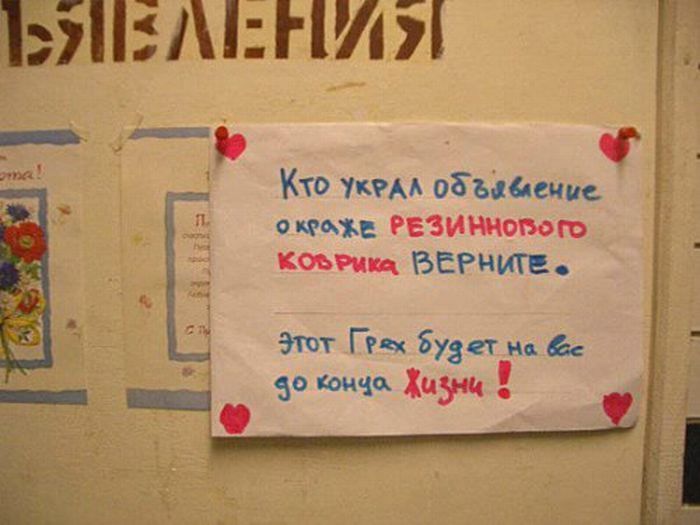 ЪЯВЛЕНИЯ
Кто украл объявление
о краже РЕЗИННОВОГО
КОВРИКА ВЕРНИТЕ.
Этот Грех будет на вас
до конца Жизни!